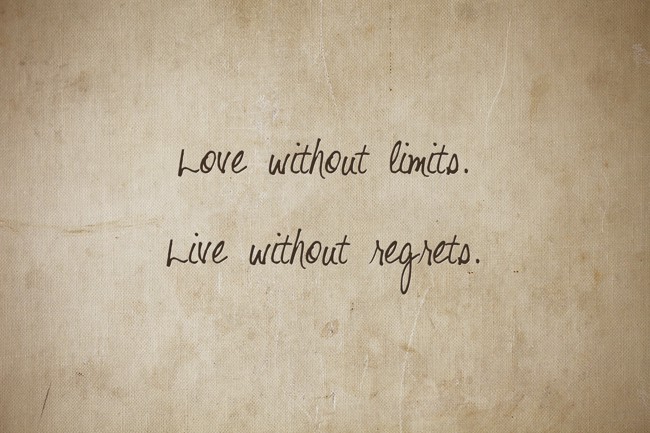 Love without limits.
Live without regrets.